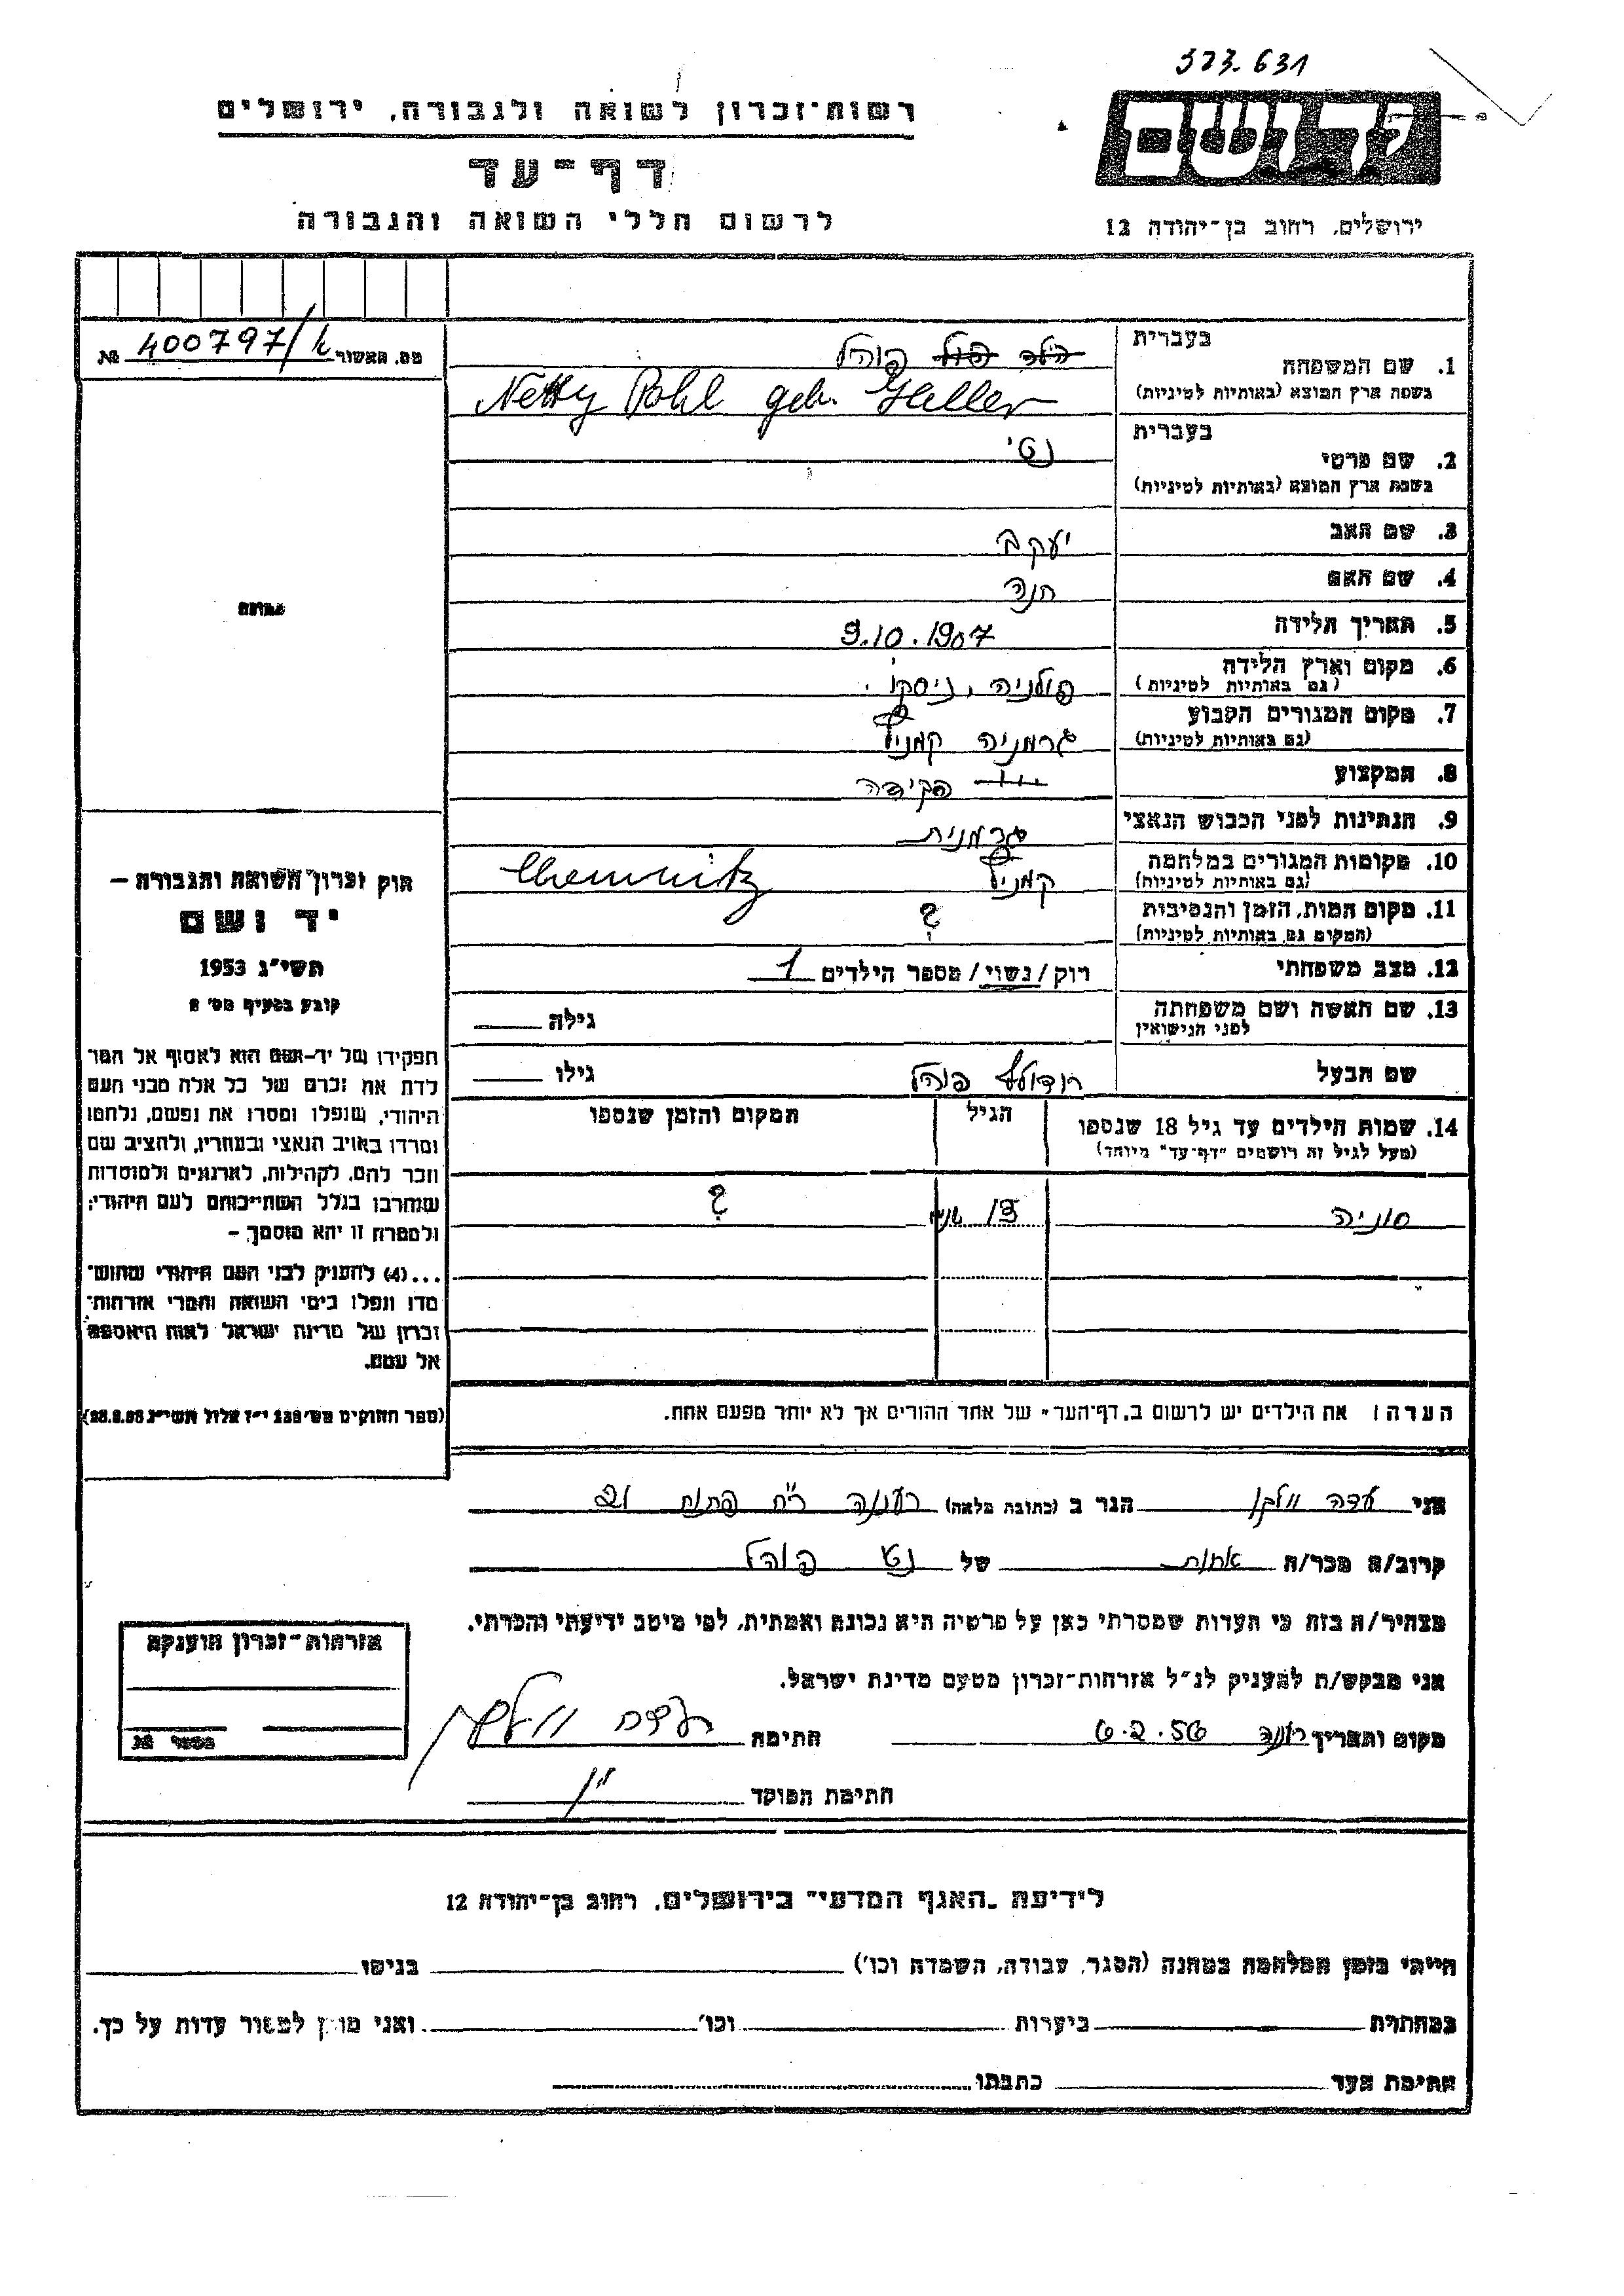 573.631
רשות־זכרון לשואה ולגבורה, ירושלים
יד ושם
דף־עד
לרשום חללי השואה והגבורה
ירושלים, רחוב בן־יהודה 12
מס. האשור 400797/ №
1. שם המשפחה
בעברית
פוהל
בשפת ארץ המוצא (באותיות לטיניות)
Netty Pohl geb. Haller
2. שם פרטי
בעברית
נטי
בשפת ארץ המוצא (באותיות לטיניות)
3. שם האב יעקב
4. שם האם חנה
תמונה
5. תאריך הלידה 9.10.1907
6. מקום וארץ הלידה פולניה, ניסקו.
(גם באותיות לטיניות)
7. מקום המגורים הקבוע גרמניה קמניץ
(גם באותיות לטיניות)
8. המקצוע פקידה
9. הנתינות לפני הכבוש הנאצי גרמנית
10. מקומות המגורים במלחמה קמניץ Chemnitz
(גם באותיות לטיניות)
11. מקום המות, הזמן והנסיבות ?
(המקום גם באותיות לטיניות)
12. מצב משפחתי רוק/נשוי/ מספר הילדים 1
13. שם האשה ושם משפחתה גילה
לפני הנישואין
שם הבעל רודולף פוהל גילו
14. שמות הילדים עד גיל 18 שנספו הגיל המקום והזמן שנספו
(מעל לגיל זה רושמים "דף־עד" מיוחד)
סוניה 13 שנה ?
הערה: את הילדים יש לרשום ב„דף־העד" של אחד ההורים אך לא יותר מפעם אחת.
חוק זכרון השואה והגבורה –
יד ושם
תשי״ג 1953
קובע בסעיף מס׳ 2
תפקידו של יד־ושם הוא לאסוף אל המו
לדת את זכרם של כל אלה מבני העם
היהודי, שנפלו ומסרו את נפשם, נלחמו
ומרדו באויב הנאצי ובעוזריו, ולהציב שם
וזכר להם, לקהילות, לארגונים ולמוסדות
שנחרבו בגלל השתייכותם לעם היהודי;
ולמטרה זו יהא מוסמך –
...(4) להעניק לבני העם היהודי שהוש־
מדו ונפלו בימי השואה והמרי אזרחות־
זכרון של מדינת ישראל לאות היאספם
אל עמם.
(ספר החוקים מס׳ 132 י״ז אלול תשי״ג 28.8.53)
אני עדה וולקן הגר ב (כתובת מלאה) רעננה
קרוב/ה מכר/ה אחות של נטי פוהל
מצהיר/ה בזה כי העדות שמסרתי כאן על פרטיה היא נכונה ואמתית, לפי מיטב ידיעתי והכרתי.
אני מבקש/ת להעניק לנ״ל אזרחות־זכרון מטעם מדינת ישראל.
מקום ותאריך 6.2.56 חתימה
חתימת הפוקד
אזרחות־זכרון הוענקה
מספר №
לידיעת „האגף המדעי" בירושלים, רחוב בן־יהודה 12
הייתי בזמן המלחמה במחנה (הסגר, עבודה, השמדה וכו׳) בגיטו
במחתרת ביערות וכו׳ ואני מוכן למסור עדות על כך.
חתימת העד כתבתו